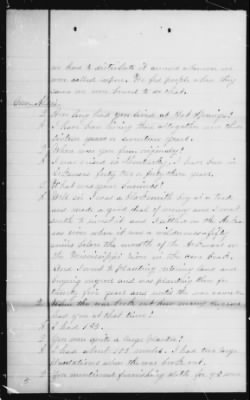 we had to distribute it around wherever we
were called upon. The people when they
came we were bound to so that.
Cross Int.
Q How long had you lived at Hot Springs?
A I have been living there altogether more than
fifteen years or seventeen years.
Q Where were you from originally?
A I was raised in Kentucky. I have been in
Arkansas forty two or forty three years.
Q What was your business?
A Well sir I was a blacksmith by a trade
and made a good deal of money and I went
south to invest it and I settled on the Arkan-
sas river when it was a wilderness fifty
miles below the mouth of the Arkansas on
the Mississippi river in the near bank.
And I went to planting entering land and
buying negroes and was planting there for
twenty five years and until the war came
Q When the war broke out how many negroes
had you at that time?
A I had 124.
Q You were quite a large planter?
A I had about 103 mules. I had two large
plantations when the war broke out.
Q You mentioned furnishing cloth for 75 men